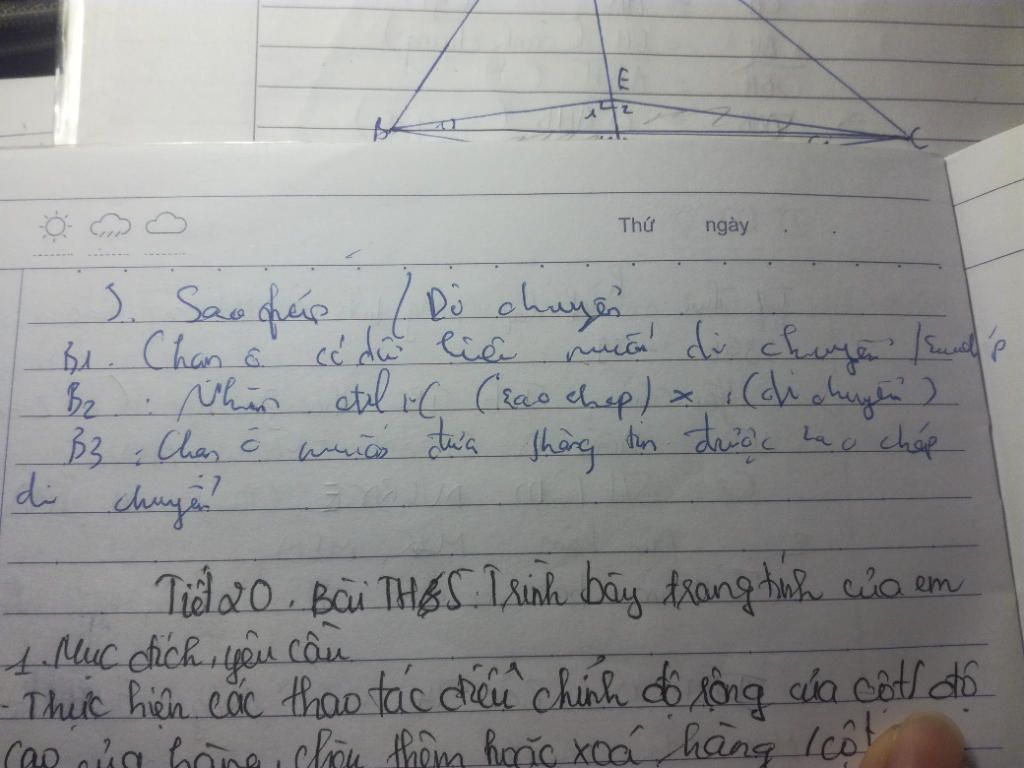 E
1 2
B C
Thứ ngày
5. Sao chép / Di chuyển
B1. Chọn ô có dữ liệu muốn di chuyển /
B2. Nhấn ctrl + C (sao chép) x (di chuyển)
B3: Chọn ô muốn đưa thông tin được sao chép
di chuyển
Tiết 20. Bài TH5: Trình bày trang tính của em
1. Mục đích, yêu cầu
- Thực hiện các thao tác điều chỉnh độ rộng của cột/ độ
cao của hàng, chèn thêm hoặc xoá hàng / cột